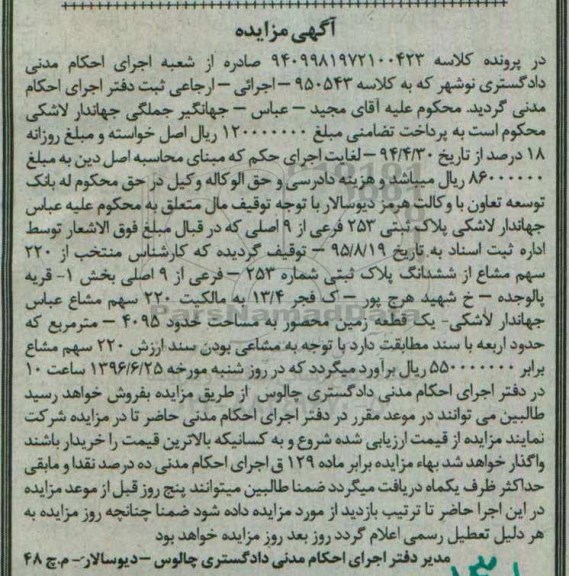 آگهی مزایده
در پرونده کلاسه ۹۴۰۹۹۸۱۹۷۲۱۰۰۴۲۳ صادره از شعبه اجرای احکام مدنی
دادگستری نوشهر که به کلاسه ۹۵۰۵۴۳ – اجرائی – ارجاعی ثبت دفتر اجرای احکام
مدنی گردید. محکوم علیه آقای مجید – عباس – جهانگیر جملگی جهاندار لاشکی
محکوم است به پرداخت تضامنی مبلغ ۱۲۰۰۰۰۰۰۰ ریال اصل خواسته و مبلغ روزانه
۱۸ درصد از تاریخ ۹۴/۴/۳۰ – لغایت اجرای حکم که مبنای محاسبه اصل دین به مبلغ
۸۶۰۰۰۰۰۰ ریال میباشد و هزینه دادرسی و حق الوکاله وکیل در حق محکوم له بانک
توسعه تعاون با وکالت هرمز دیوسالار با توجه توقیف مال متعلق به محکوم علیه عباس
جهاندار لاشکی پلاک ثبتی ۲۵۳ فرعی از ۹ اصلی که در قبال مبلغ فوق الاشعار توسط
اداره ثبت اسناد به تاریخ ۹۵/۸/۱۹ – توقیف گردیده که کارشناس منتخب از ۲۲۰
سهم مشاع از ششدانگ پلاک ثبتی شماره ۲۵۳ – فرعی از ۹ اصلی بخش ۱- قریه
پالوجده – خ شهید هرج پور – ک فجر ۱۳/۴ به مالکیت ۲۲۰ سهم مشاع عباس
جهاندار لاشکی- یک قطعه زمین محصور به مساحت حدود ۴۰۹۵ – مترمربع که
حدود اربعه با سند مطابقت دارد با توجه به مشاعی بودن سند ارزش ۲۲۰ سهم مشاع
برابر ۵۵۰۰۰۰۰۰۰ ریال برآورد میگردد که در روز شنبه مورخه ۱۳۹۶/۶/۲۵ ساعت ۱۰
در دفتر اجرای احکام مدنی دادگستری چالوس از طریق مزایده بفروش خواهد رسید
طالبین می توانند در موعد مقرر در دفتر اجرای احکام مدنی حاضر تا در مزایده شرکت
نمایند مزایده از قیمت ارزیابی شده شروع و به کسانیکه بالاترین قیمت را خریدار باشند
واگذار خواهد شد بهاء مزایده برابر ماده ۱۲۹ ق اجرای احکام مدنی ده درصد نقدا و مابقی
حداکثر ظرف یکماه دریافت میگردد ضمنا طالبین میتوانند پنج روز قبل از موعد مزایده
در این اجرا حاضر تا ترتیب بازدید از مورد مزایده داده شود ضمنا چنانچه روز مزایده به
هر دلیل تعطیل رسمی اعلام گردد روز بعد روز مزایده خواهد بود
مدیر دفتر اجرای احکام مدنی دادگستری چالوس – دیوسالار – م.چ ۴۸
ParsNamadData